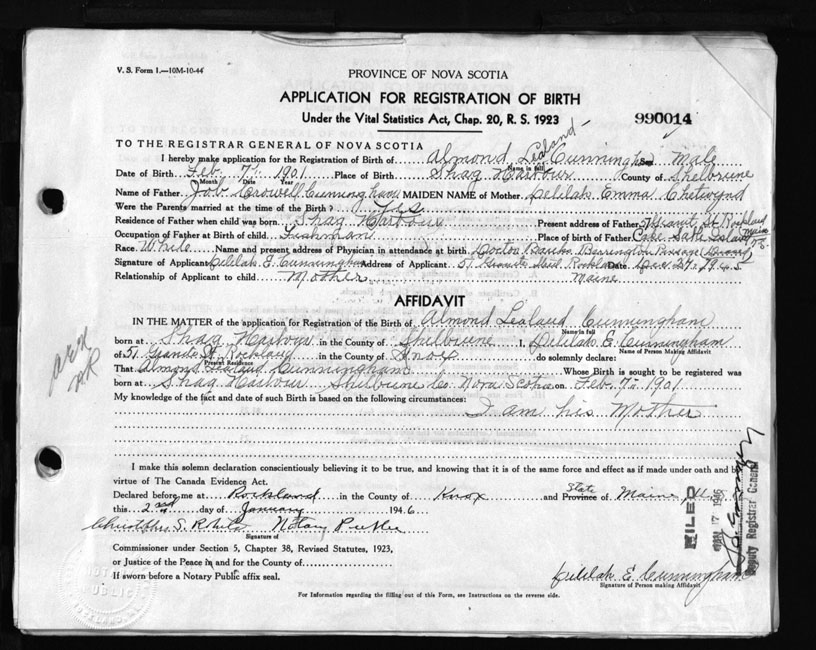 V. S. Form 1.—10M-10-44
PROVINCE OF NOVA SCOTIA
APPLICATION FOR REGISTRATION OF BIRTH
Under the Vital Statistics Act, Chap. 20, R. S. 1923
990014
TO THE REGISTRAR GENERAL OF NOVA SCOTIA
I hereby make application for the Registration of Birth of Almond Lealand Cunningham Sex Male
Name in full
Date of Birth Feb. 7th 1901 Place of Birth Shag Harbour County of Shelburne
Month Date Year
Name of Father Job Crowell Cunningham MAIDEN NAME of Mother Delilah Emma Chetwynd
Were the Parents married at the time of the Birth? Yes
Residence of Father when child was born Shag Harbour Present address of Father 51 St Rockland Maine
Occupation of Father at Birth of child Fishman Place of birth of Father Cape Sable Island N.S.
Race White Name and present address of Physician in attendance at birth Doctor Barrington Passage
Signature of Applicant Delilah E. Cunningham Address of Applicant 51 Rockland Date Dec 27. 1945
Relationship of Applicant to child Mother Maine
AFFIDAVIT
IN THE MATTER of the application for Registration of the Birth of Almond Lealand Cunningham
Name in full
born at Shag Harbour in the County of Shelburne I, Delilah E. Cunningham
Name of Person Making Affidavit
of 51 St Rockland in the County of Knox do solemnly declare:
Present Residence
That Almond Lealand Cunningham Whose Birth is sought to be registered was
born at Shag Harbour Shelburne Co. Nova Scotia on Feb. 7th 1901
My knowledge of the fact and date of such Birth is based on the following circumstances:
I am his Mother
I make this solemn declaration conscientiously believing it to be true, and knowing that it is of the same force and effect as if made under oath and by
virtue of The Canada Evidence Act.
Declared before me at Rockland in the County of Knox and State Province of Maine, U.S.
this 2nd day of January 1946
Notary Public
Signature of
Commissioner under Section 5, Chapter 38, Revised Statutes, 1923,
or Justice of the Peace in and for the County of
If sworn before a Notary Public affix seal.
Delilah E. Cunningham
Signature of Person making Affidavit
For Information regarding the filling out of this Form, see Instructions on the reverse side.
FILED
JAN 17 1946
Deputy Registrar General